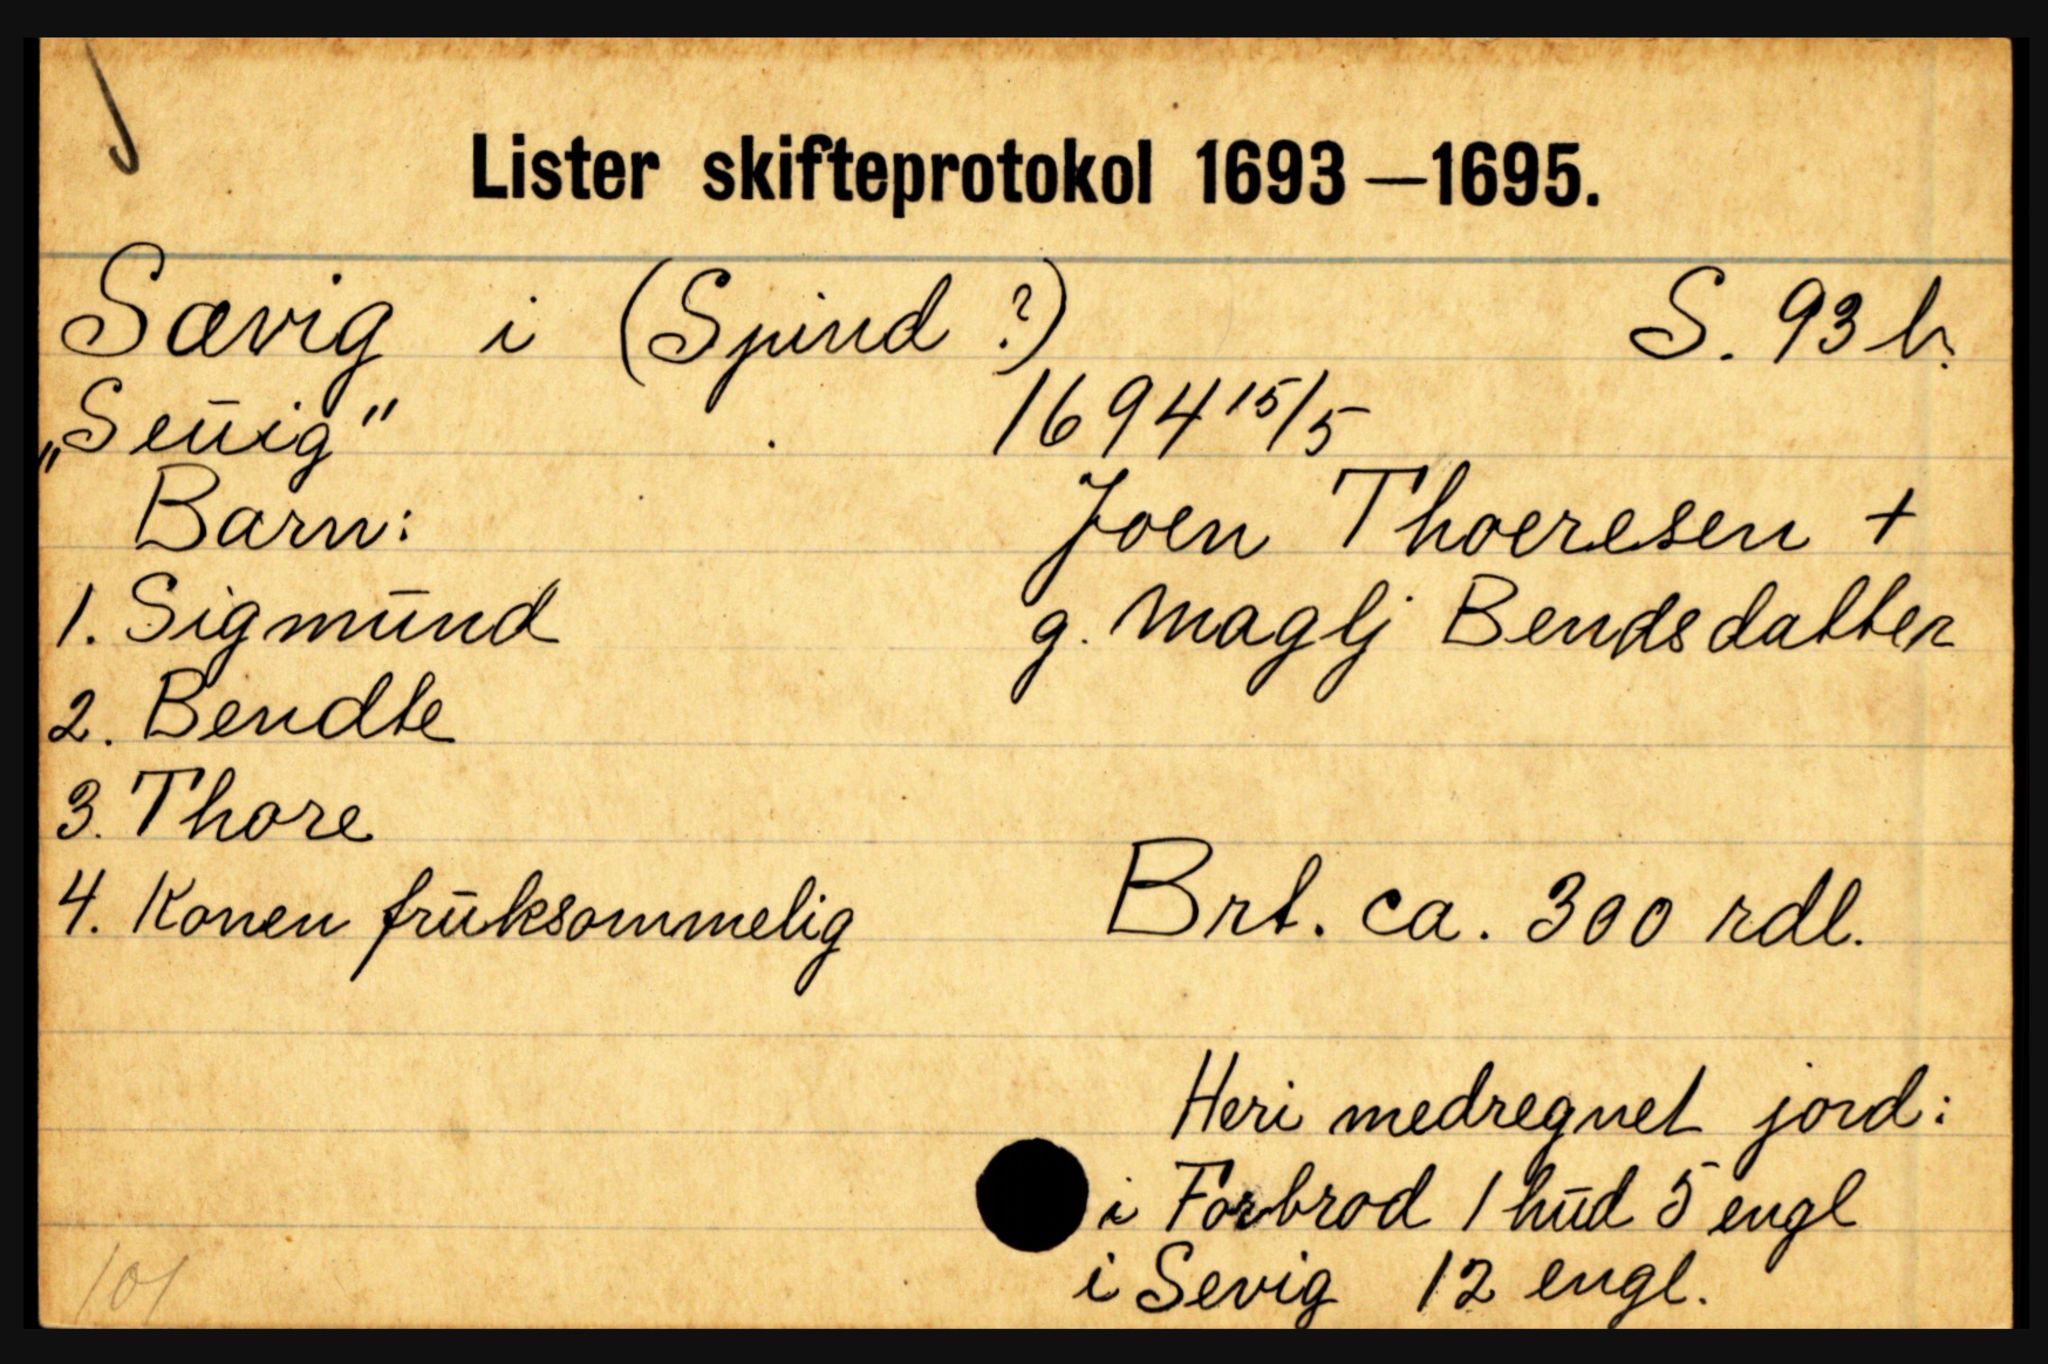 Lister skifteprotokol 1693—1695.
Sævig i (Spind ?) S. 93 b.
„Seūig" 1694 15/5
Barn: Joen Thoeresen +
1. Sigmūnd g. Maglj Bendsdatter
2. Bendte
3. Thore
4. Konen frūksommelig Brt. ca. 300 rdl.
Heri medregnet jord:
i Forbrod 1 hūd 5 engl
i Sevig 12 engl.
101